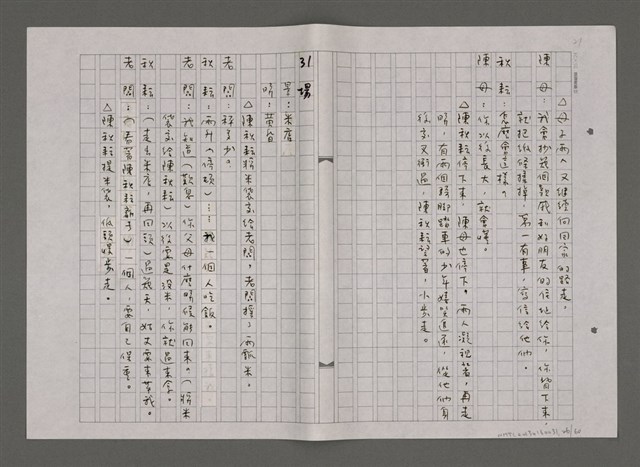 △母子兩人又繼續向回家的路走。
陳母：我會抄幾個親戚和好朋友的住址給你，你留下來
就把紙條接掉，萬一有事，寫信給他們。
秋耘：怎麼會這樣。
陳母：你以後長大，就會懂。
△陳秋耘停下來，陳母也停下。兩人凝視著，再走
時，有兩個騎腳踏車的少年嬉笑追逐，從他們身
後交叉衝過，陳秋耘望著，小步走。
31場
景：米店
時：黃昏
△陳秋耘將米袋交給老闆，老闆擇了兩飯米。
老闆：秤多少？
秋耘：兩升（停頓）……我一個人吃飯。
老闆：我知道（歎息）你父母什麼時候能回來。（將米
袋交給陳秋耘）以後要是沒米，你就過來拿。
秋耘：（走出米店，再回頭）過幾天，姑丈要來帶我。
老闆：（看著陳秋耘影子）一個人，要自己保重。
△陳秋耘提米袋，低頭慢步走。